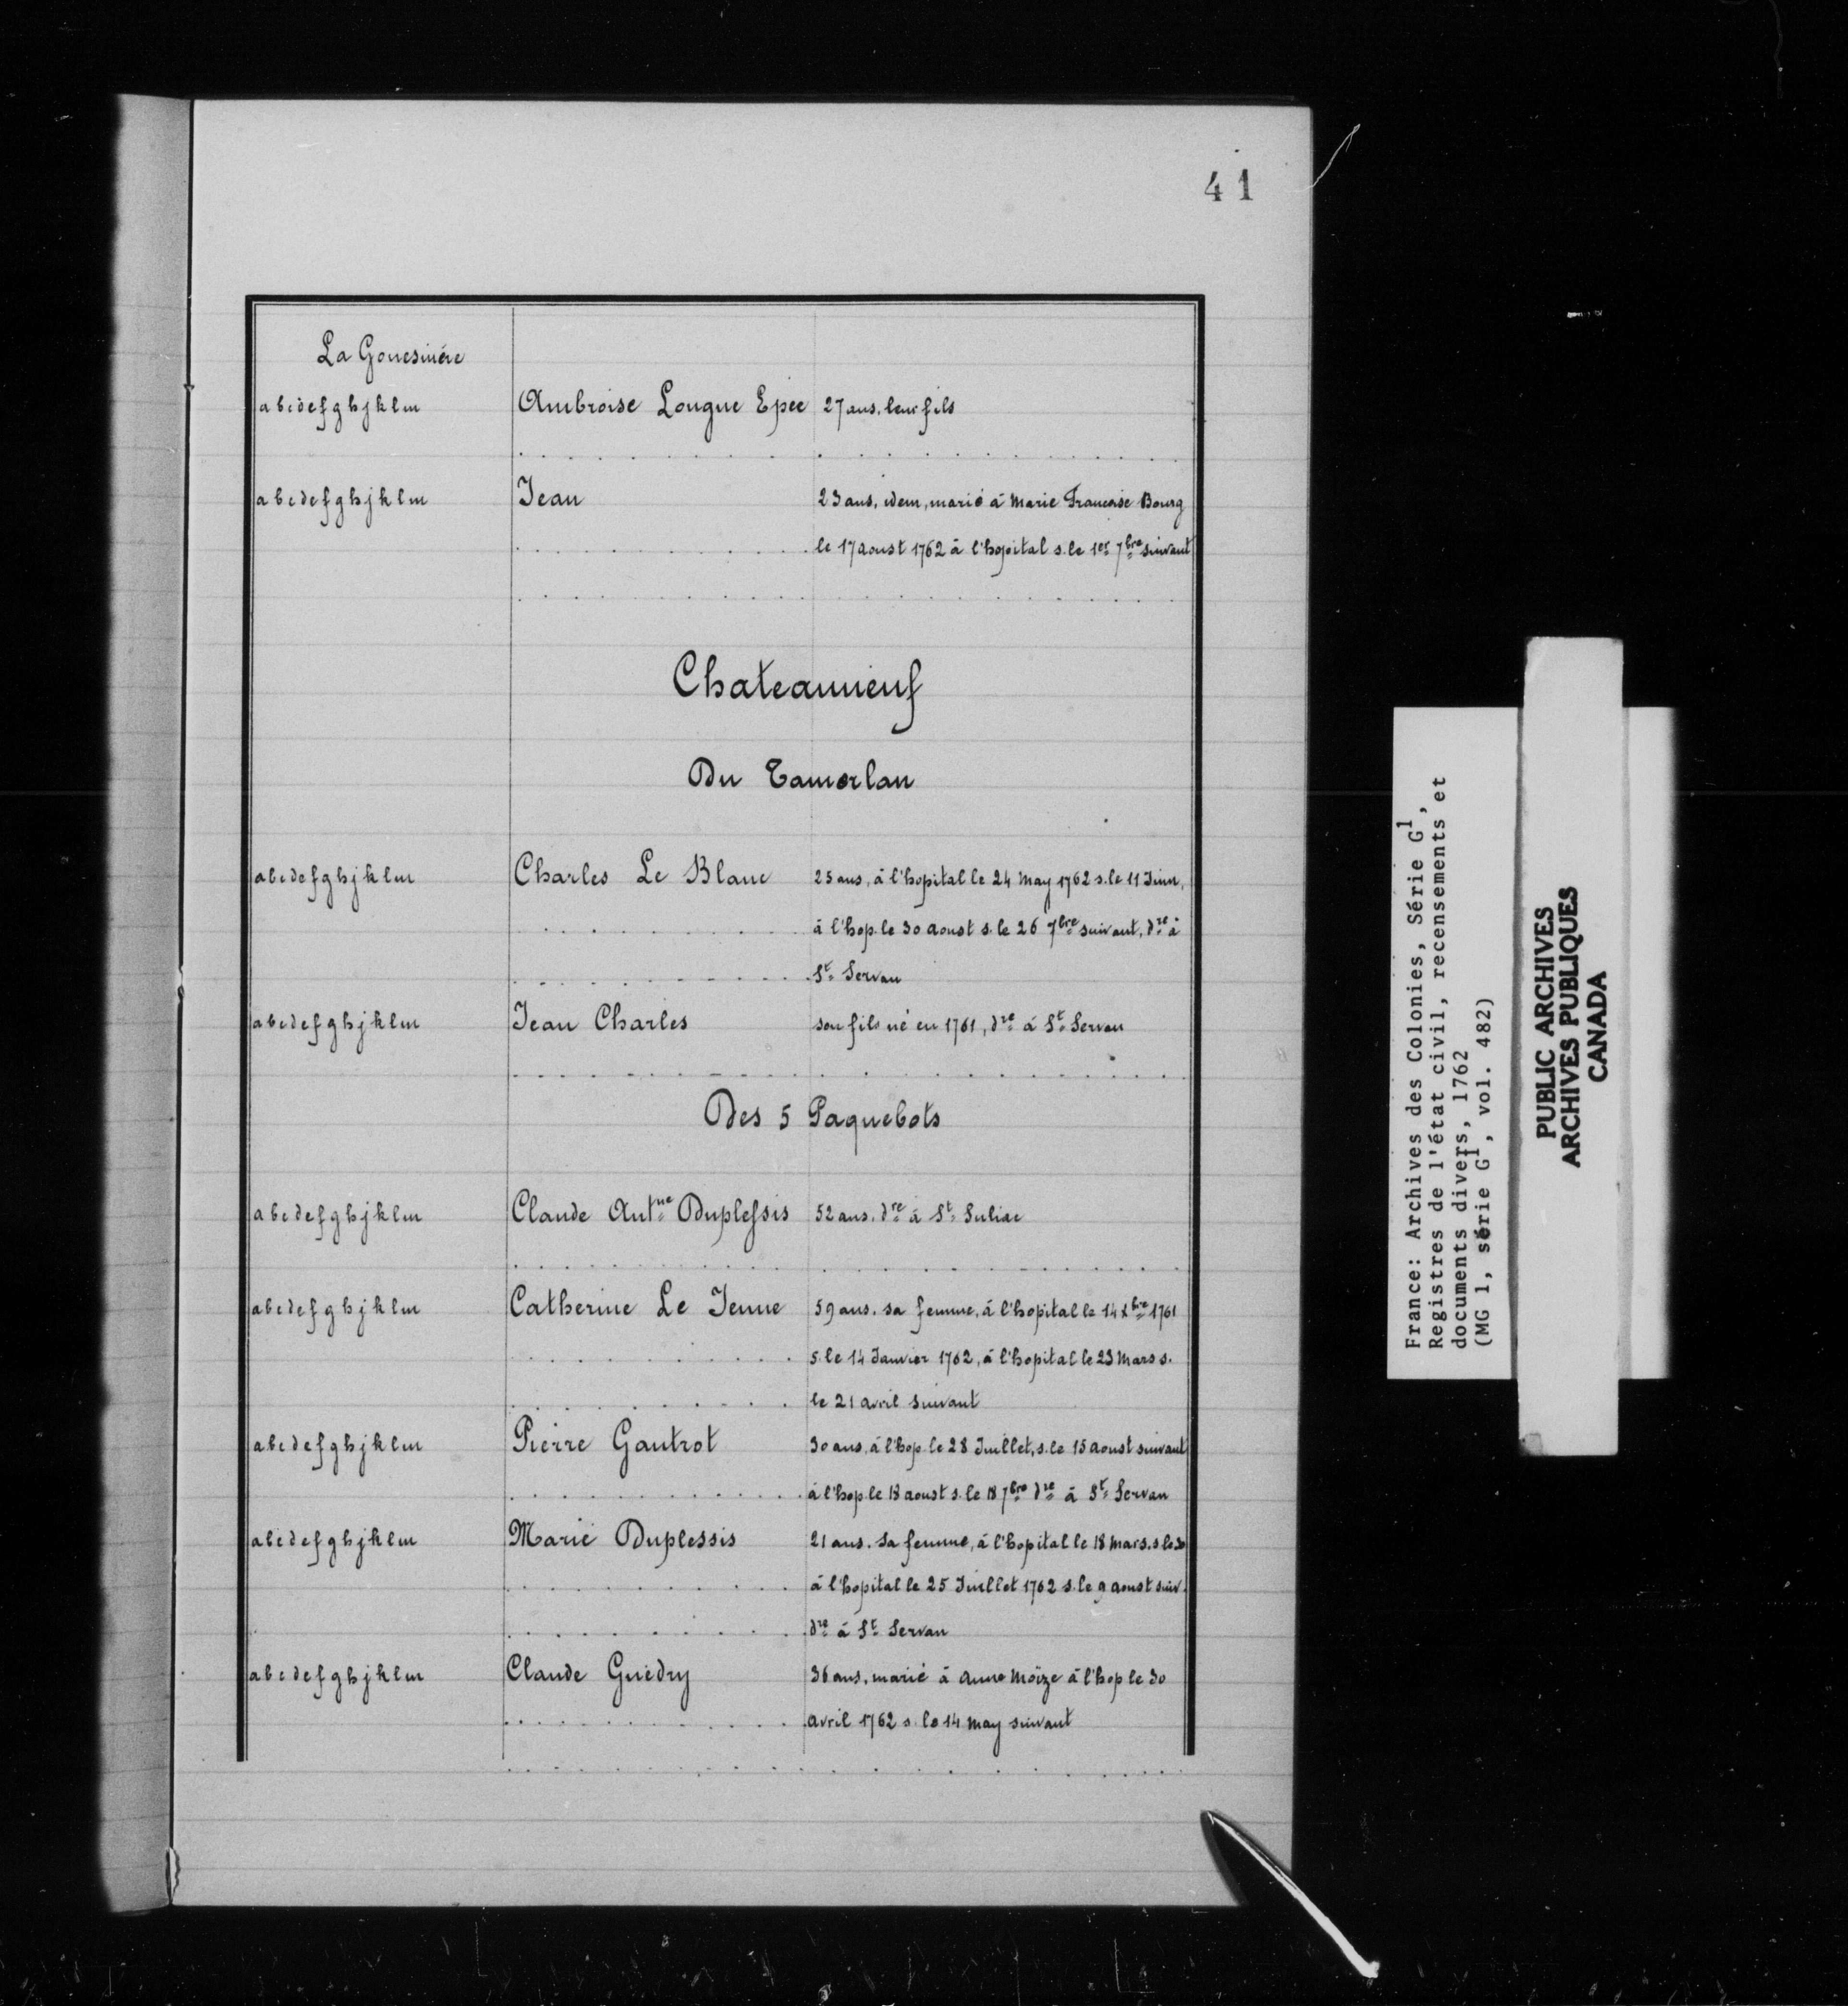 41
La Gouesnière
abcdefghjklm Ambroise Longue Epee 27 ans, leur fils
abcdefghjklm Jean 23 ans, idem, marié à Marie Francoise Bourg
le 17 aoust 1762 à l'hopital s. le 1er 7bre suivant
Chateauneuf
Du Tamerlan
abcdefghjklm Charles Le Blanc 25 ans, à l'hopital le 24 May 1762 s. le 11 Juin,
à l'hop. le 30 aoust s. le 26 7bre suivant, dre à
St Servan
abcdefghjklm Jean Charles son fils né en 1761, dre à St Servan
Des 5 Paquebots
abcdefghjklm Claude Antne Duplessis 52 ans, dre à St Suliac
abcdefghjklm Catherine Le Jeune 59 ans, sa femme, à l'hopital le 14 xbre 1761
s. le 14 Janvier 1762, à l'hopital le 23 Mars s.
le 21 avril suivant
abcdefghjklm Pierre Gautrot 30 ans, à l'hop. le 28 Juillet, s. le 15 aoust suivant
à l'hop. le 18 aoust s. le 18 7bre dre à St Servan
abcdefghjklm Marie Duplessis 21 ans. sa femme, à l'hopital le 18 Mars, s. le 30
à l'hopital le 25 Juillet 1762 s. le 9 aoust suiv.
dre à St Servan
abcdefghjklm Claude Guédry 36 ans, marié à Anne Moïze à l'hop le 30
avril 1762 s. le 14 May suivant
France: Archives des Colonies, Série G1,
Registres de l'état civil, recensements et
documents divers, 1762
(MG 1, série G1, vol. 482)
PUBLIC ARCHIVES
ARCHIVES PUBLIQUES
CANADA